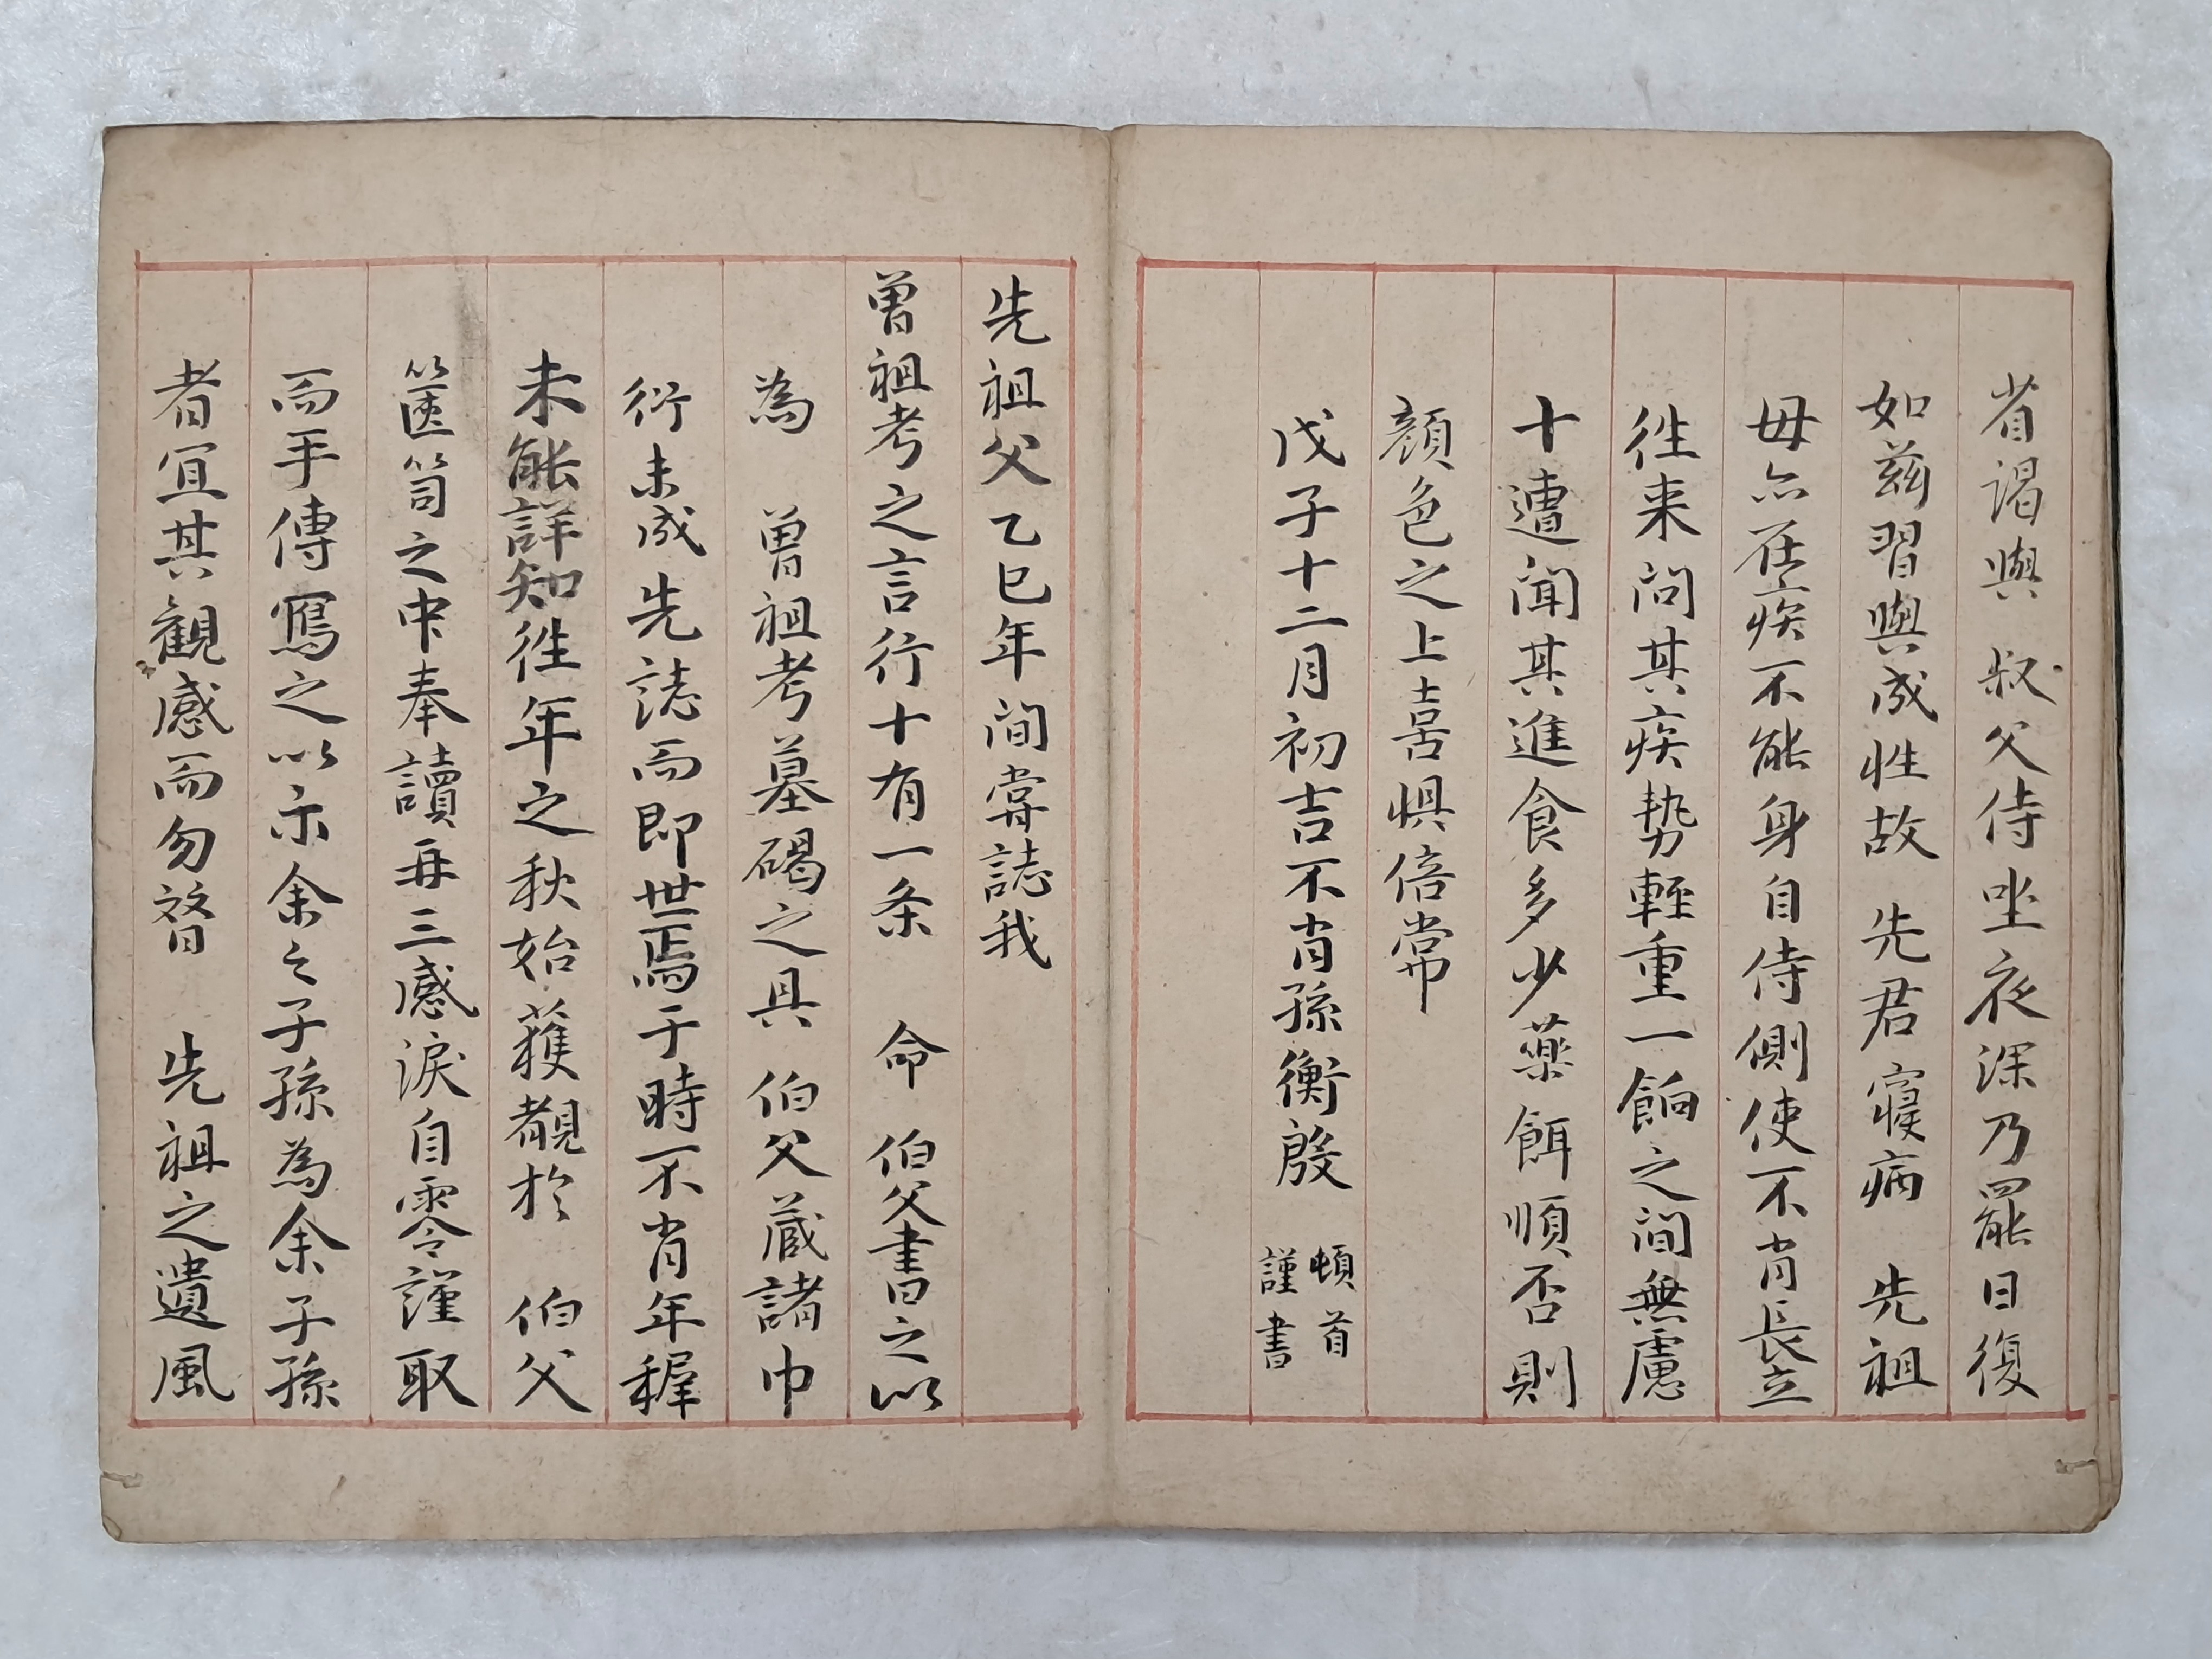 省謁與 叔父侍坐夜深乃罷日復
如茲習與成性故 先君寢病 先祖
母亦在疾不能身自侍側使不肖長立
徃来问其疾势輕重一餉之间無慮
十遭闻其進食多少藥餌順否則
顔色之上喜惧倍常
戊子十二月初吉不肖孫衡殷 頓首
謹書
先祖父乙巳年间嘗誌我
曽祖考之言行十有一条 命 伯父書之以
為 曽祖考墓碣之具 伯父蔵諸巾
衍未成先誌而即世焉于時不肖年穉
未能詳知徃年之秋始獲覩於 伯父
篋笥之中奉讀再三感淚自零謹取
而手傳寫之以示余之子孫為余子孫
者宜其観感而勿替 先祖之遺風